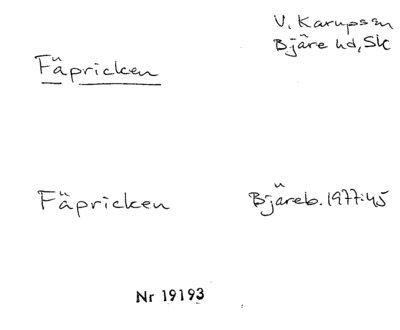 V. Karupssn
Bjäre hd, Sk
Fäpricken
Fäpricken Bjäreb. 1977:45
Nr 19193